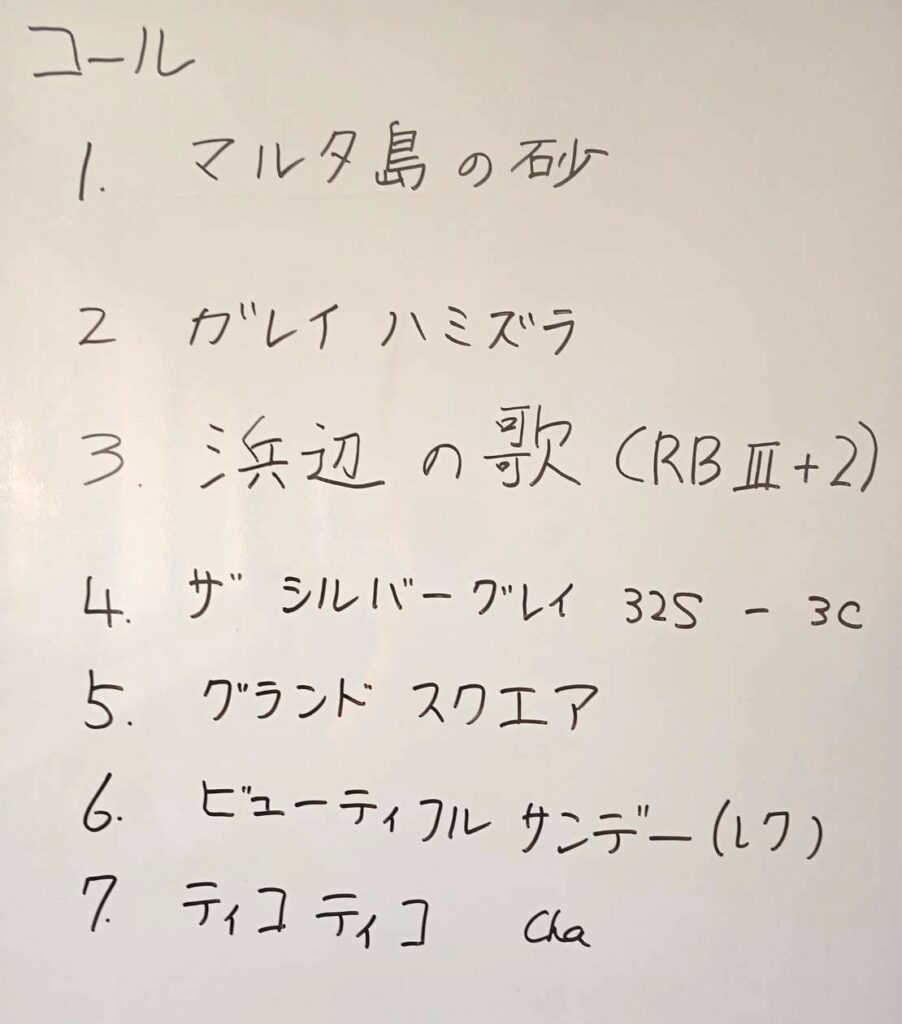 コール
1. マルタ島の砂
2 ガレイ ハミズラ
3. 浜辺の歌 (RBⅢ+2)
4. ザ シルバーグレイ 32S - 3C
5. グランド スクエア
6. ビューティフル サンデー(レク)
7. ティコ ティコ Cha